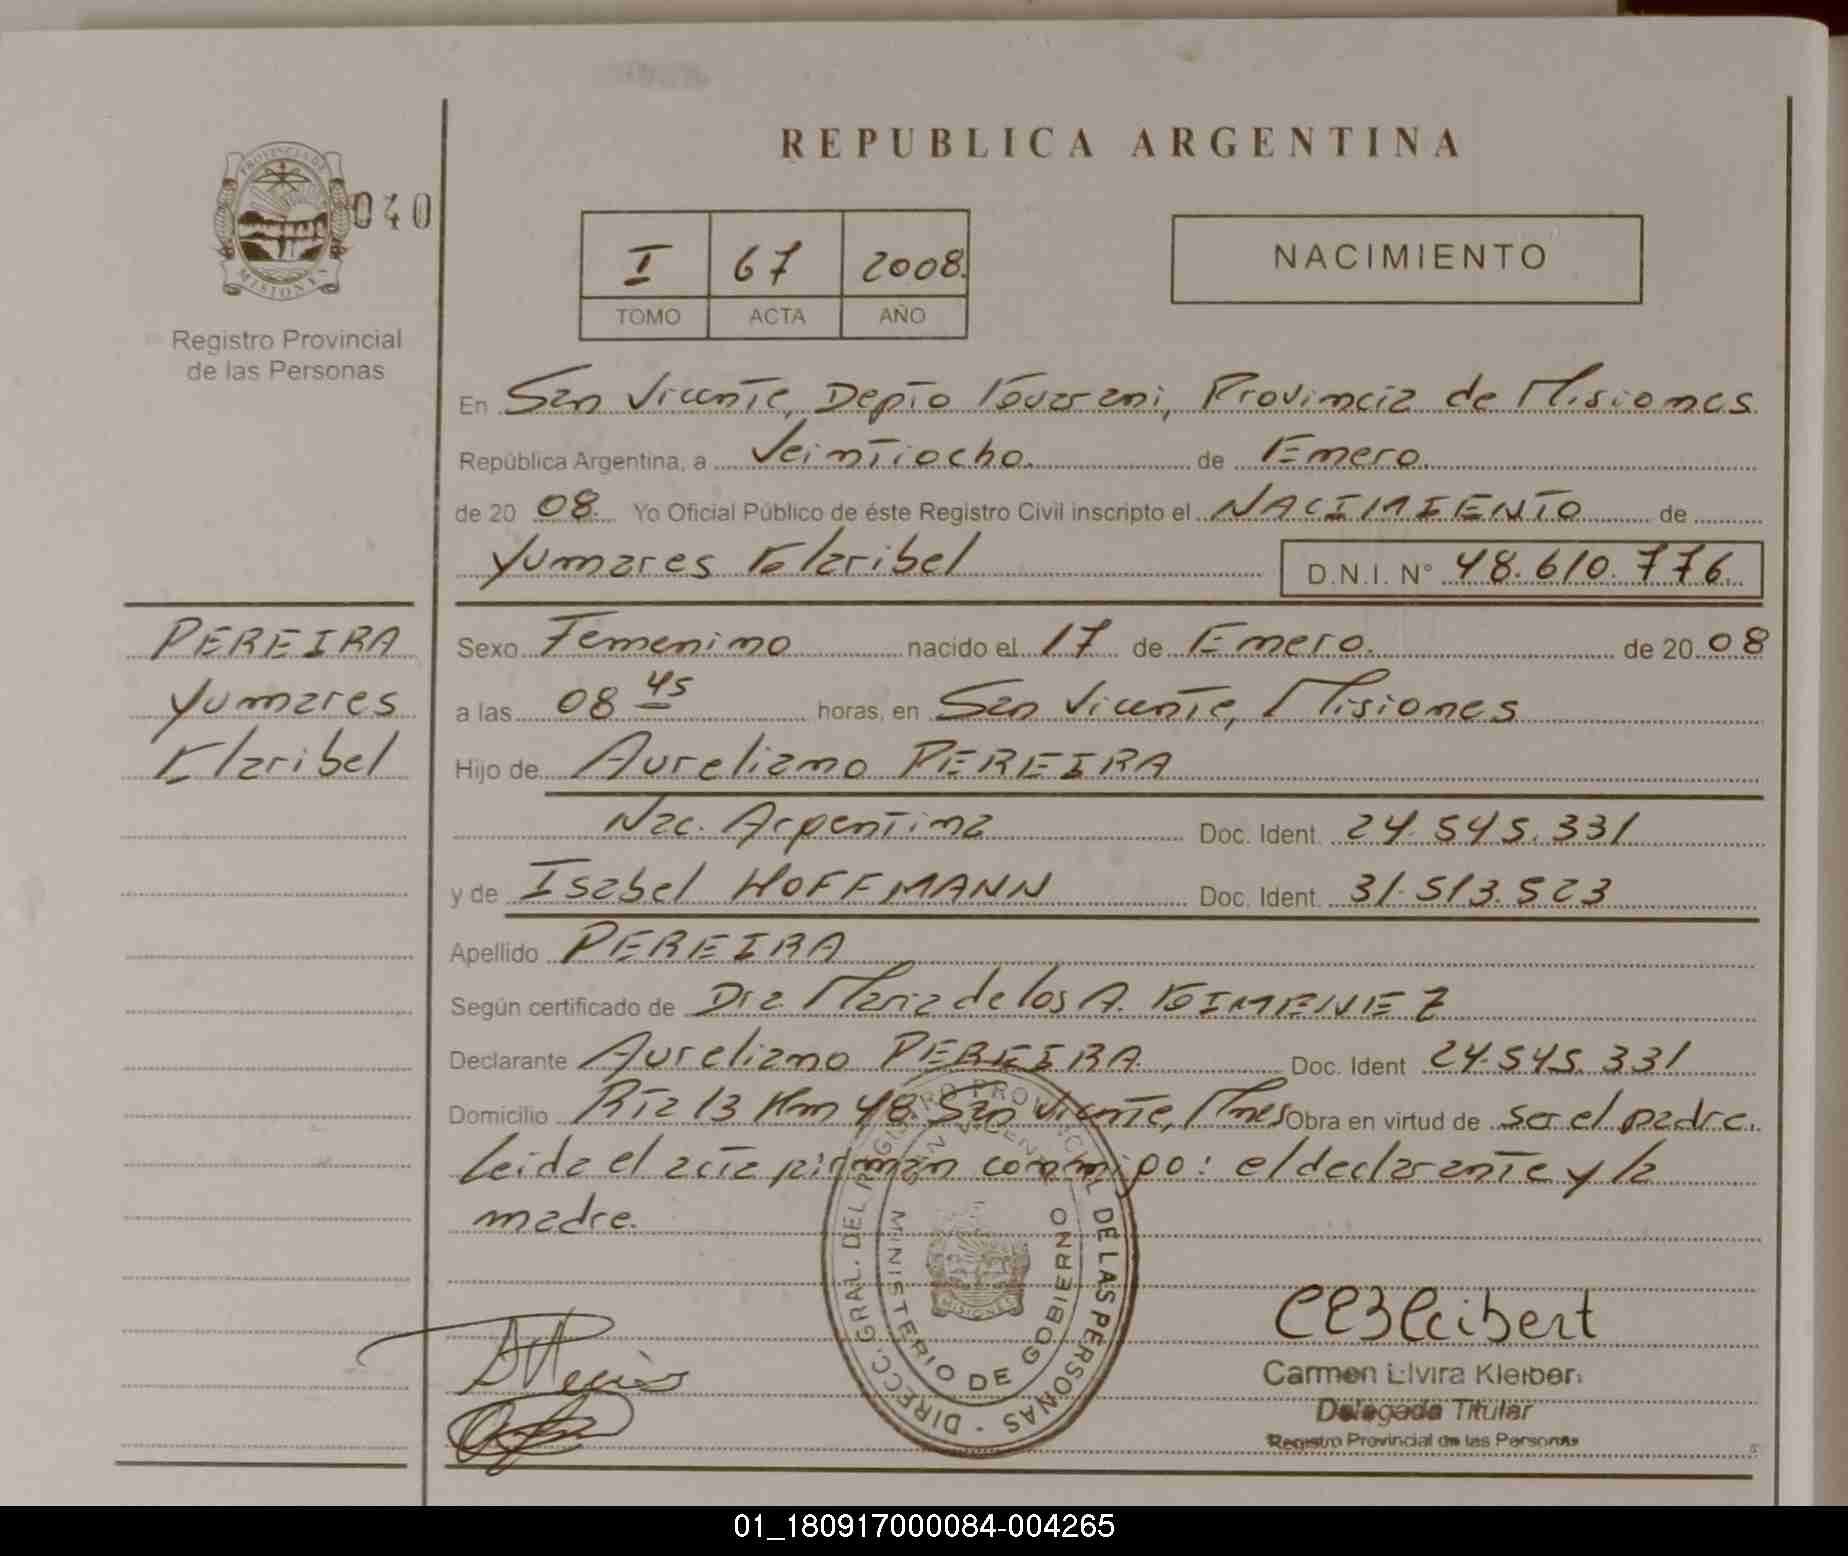 REPUBLICA ARGENTINA
PROVINCIA DE
MISIONES
040
Registro Provincial
de las Personas
I 67 2008.
TOMO ACTA AÑO
NACIMIENTO
En San Vicente, Depto Guarani, Provincia de Misiones
República Argentina, a Veintiocho. de Enero.
de 20 08. Yo Oficial Público de éste Registro Civil inscripto el NACIMIENTO de
Yumares Claribel D.N.I. N° 48.610.776.
PEREIRA
Yumares
Claribel
Sexo Femenino nacido el 17 de Enero. de 20 08
a las 08 45 horas, en San Vicente, Misiones
Hijo de Aureliano PEREIRA
Nac. Argentina Doc. Ident. 24.545.331
y de Isabel HOFFMANN Doc. Ident. 31.513.523
Apellido PEREIRA
Según certificado de Dra. Maria de los A. GIMENEZ
Declarante Aureliano PEREIRA. Doc. Ident 24.545.331
Domicilio Rta 13 Km 48 San Vicente, Mnes Obra en virtud de ser el padre.
Leida el acta firman conmigo: el declarante y la
madre.
DIRECC. GRAL. DEL REGISTRO PROVINCIAL DE LAS PERSONAS -
SAN VICENTE
MINISTERIO DE GOBIERNO
MISIONES
Carmen Elvira Kleibert
Delegada Titular
Registro Provincial de las Personas
01_180917000084-004265